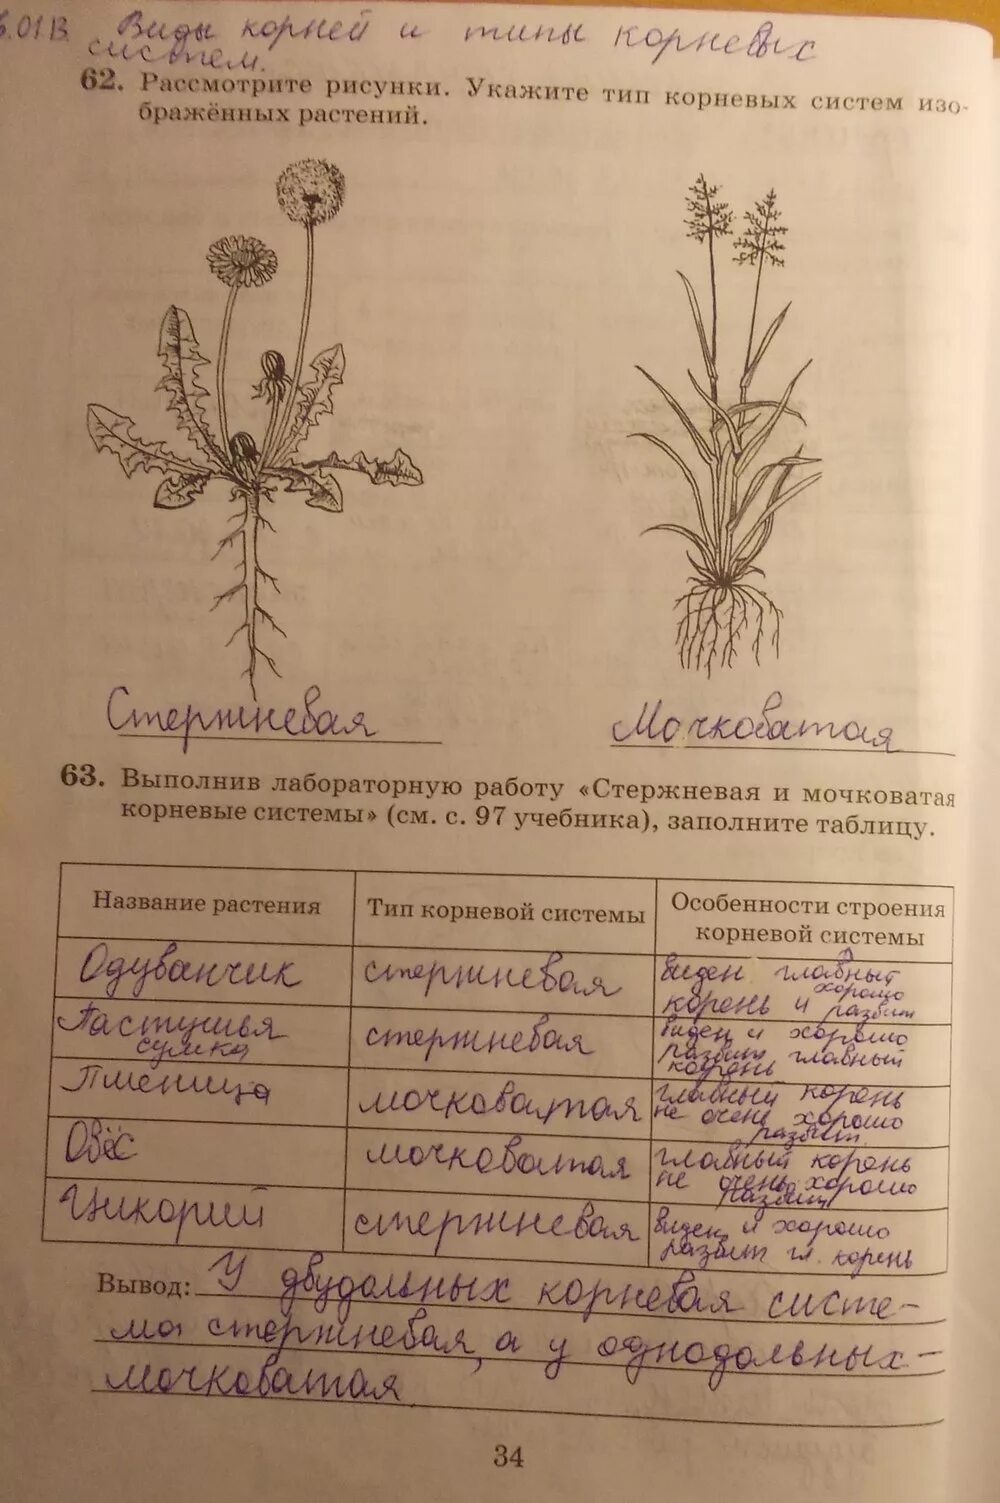 .01.13. Виды корней и типы корневых
систем.
62. Рассмотрите рисунки. Укажите тип корневых систем изо-
бражённых растений.
Стержневая
Мочковатая
63. Выполнив лабораторную работу «Стержневая и мочковатая
корневые системы» (см. с. 97 учебника), заполните таблицу.
Название растения
Тип корневой системы
Особенности строения
корневой системы
Одуванчик
стержневая
виден главный
хорошо
корень и развит
Пастушья
сумка
стержневая
виден и хорошо
развит главный
корень
Пшеница
мочковатая
главный корень
не очень хорошо
развит.
Овёс
мочковатая
главный корень
не очень хорошо
развит
Цикорий
стержневая
виден и хорошо
развит гл. корень
Вывод: У двудольных корневая систе-
ма стержневая, а у однодольных-
мочковатая.
34